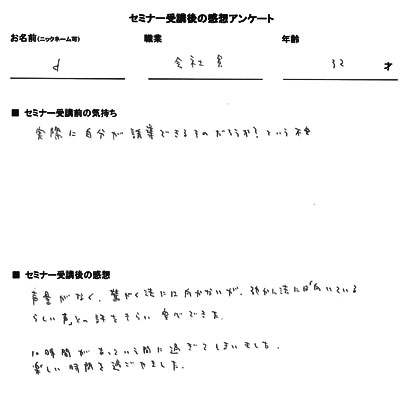 セミナー受講後の感想アンケート
お名前(ニックネーム可) 職業 年齢
d 会社員 32 才
■ セミナー受講前の気持ち
実際に自分が誘導できるものだろうか?という不安
■ セミナー受講後の感想
声量がなく、驚がく法には向かないが、弛かん法には「向いている
らしい声」との評をもらい食べできた。
10時間があっという間に過ぎてしまいました。
楽しい時間を過ごせました。